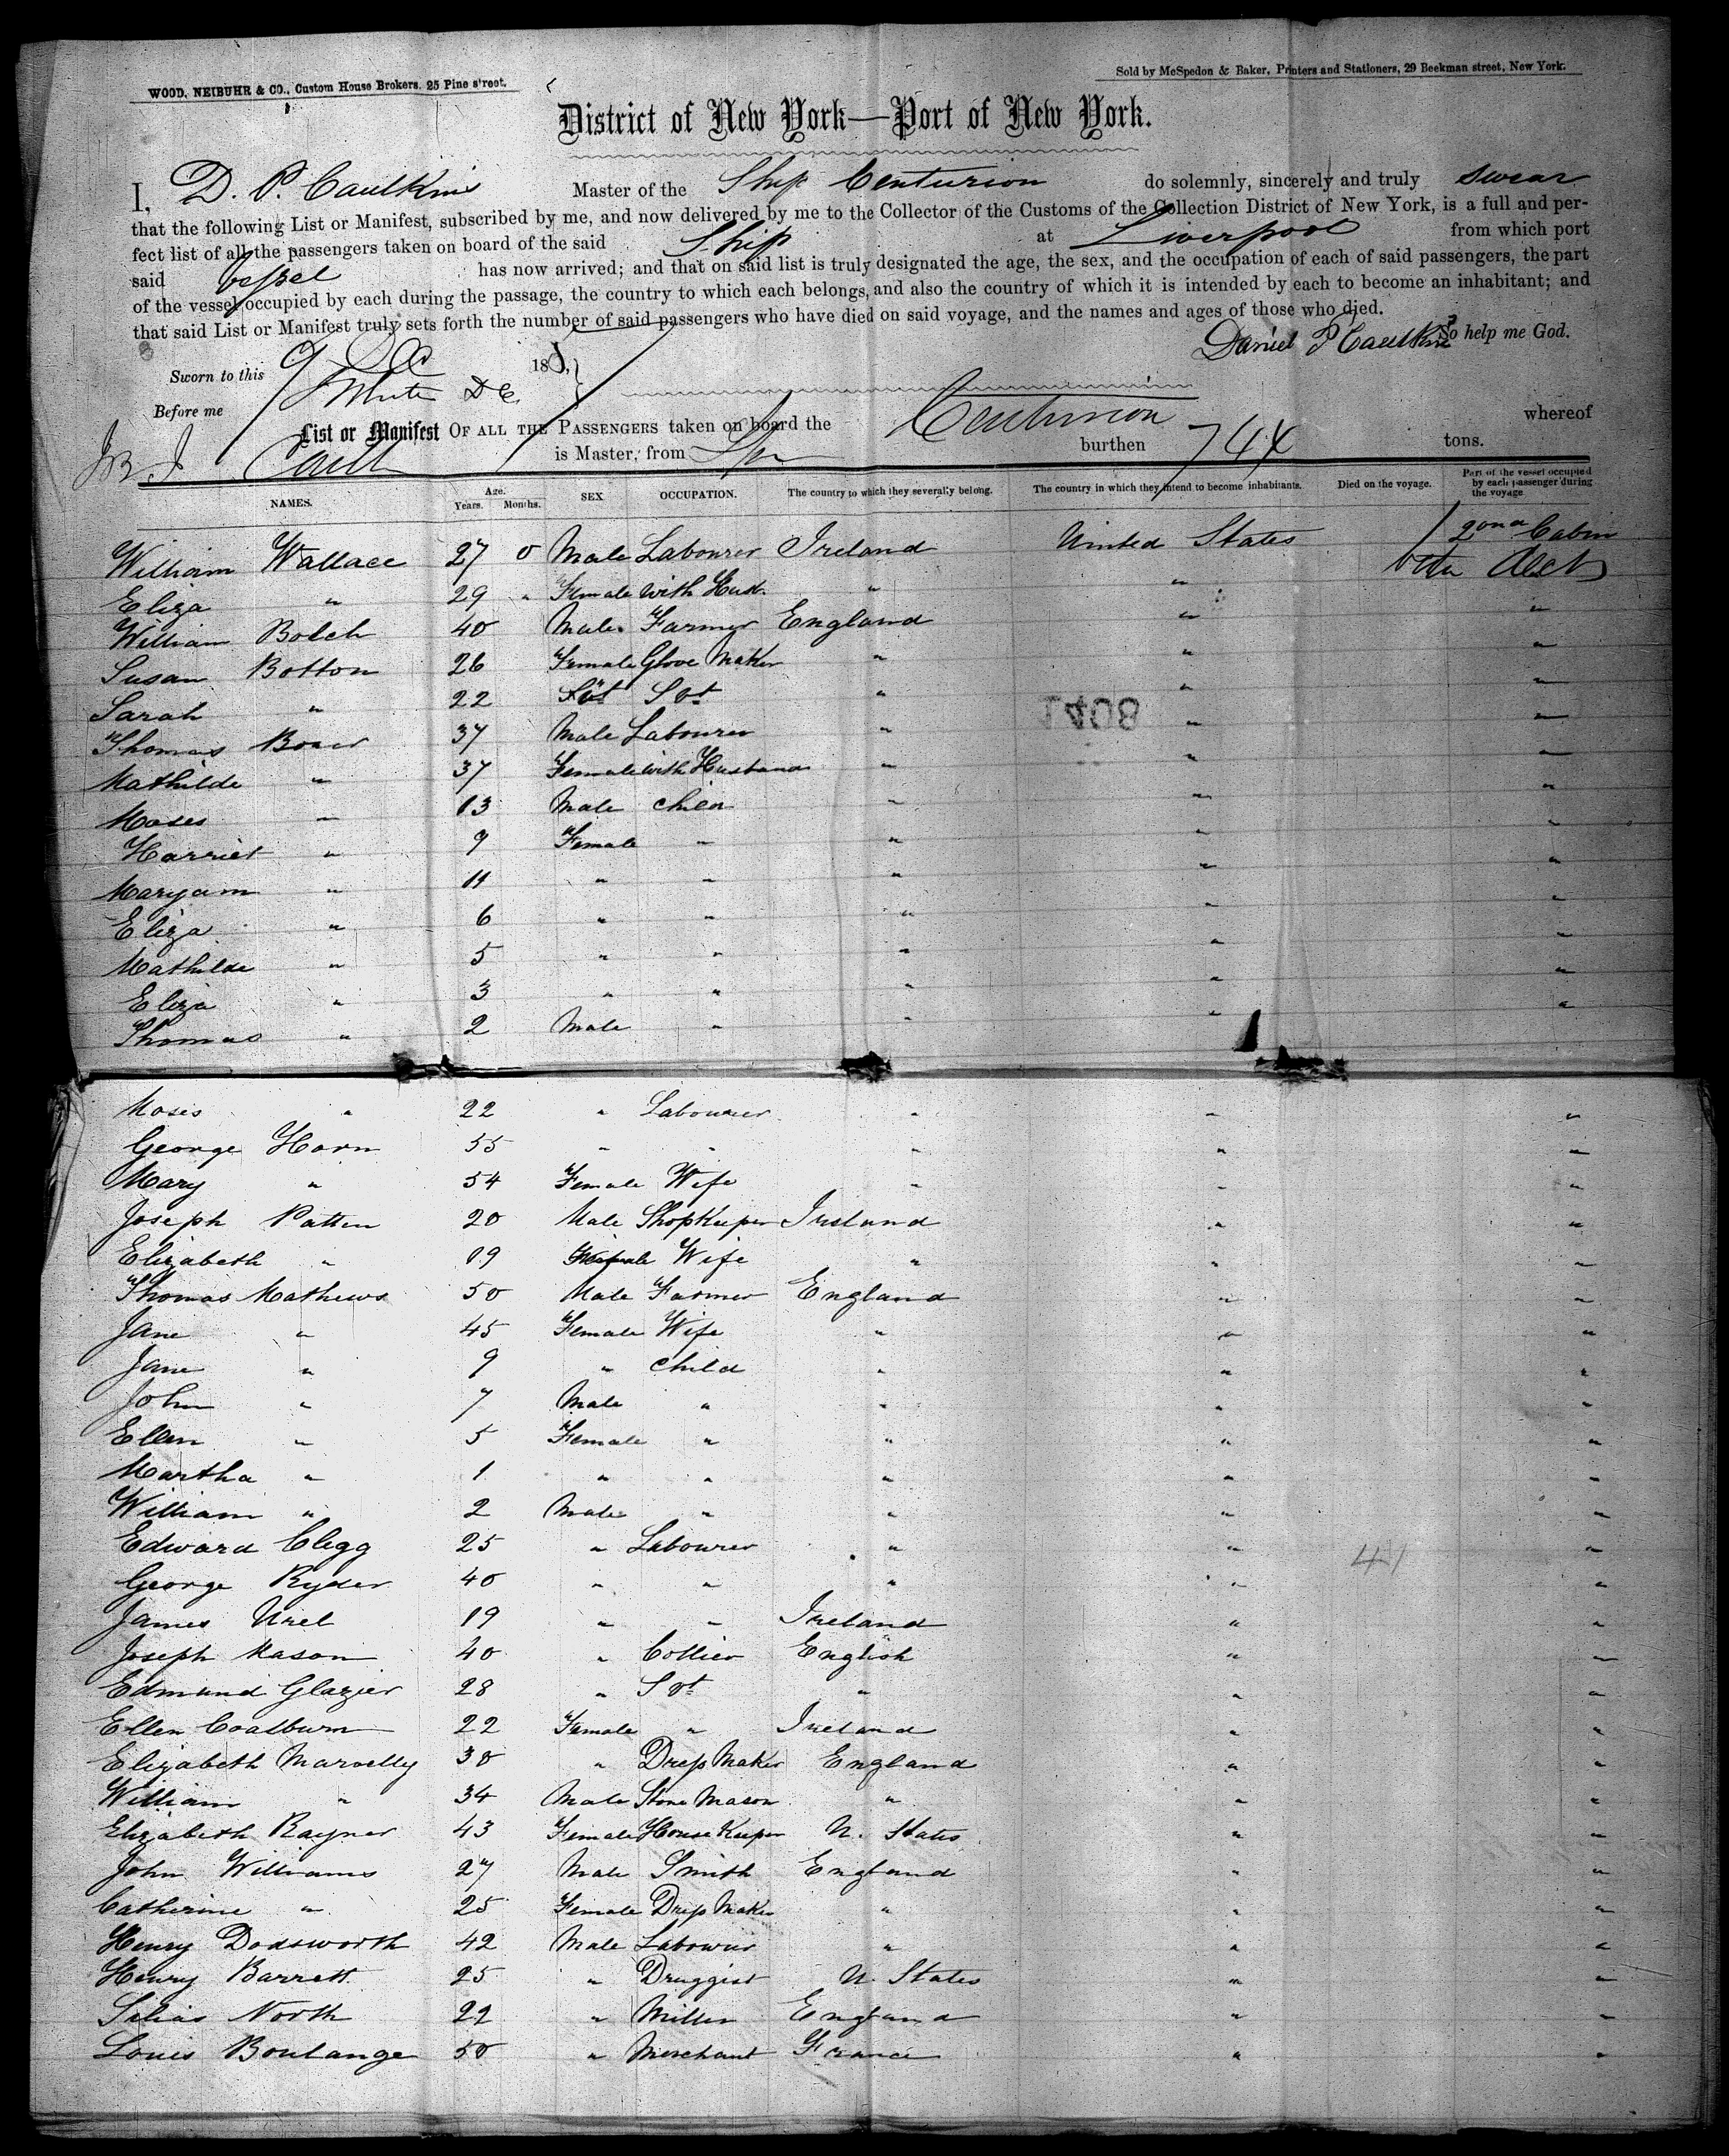 WOOD, NEIBUHR & CO., Custom House Brokers, 25 Pine street.
Sold by McSpedon & Baker, Printers and Stationers, 29 Beekman street, New York.
District of New York—Port of New York.
I, D. P. Caulkins Master of the Ship Centurion do solemnly, sincerely and truly swear
that the following List or Manifest, subscribed by me, and now delivered by me to the Collector of the Customs of the Collection District of New York, is a full and per-
fect list of all the passengers taken on board of the said Ship at Liverpool from which port
said Vessel has now arrived; and that on said list is truly designated the age, the sex, and the occupation of each of said passengers, the part
of the vessel occupied by each during the passage, the country to which each belongs, and also the country of which it is intended by each to become an inhabitant; and
that said List or Manifest truly sets forth the number of said passengers who have died on said voyage, and the names and ages of those who died.
Daniel P Caulkins So help me God.
Sworn to this 9 185
Before me White DC
List or Manifest OF ALL THE PASSENGERS taken on board the Centurion whereof
is Master, from burthen 744 tons.
NAMES. Age. Years. Months. SEX OCCUPATION. The country to which they severally belong. The country in which they intend to become inhabitants. Died on the voyage. Part of the vessel occupied by each passenger during the voyage
William Wallace 27 0 Male Labourer Ireland United States 2ond Cabin
Eliza " 29 " Female with Husb. " " Deck
William Bolch 40 Male Farmer England " "
Susan Botton 26 Female Glove Maker " " "
Sarah " 22 " Svt " " "
1408
Thomas 37 Male Labourer " " "
Mathilde " 37 Female with Husband " " "
Moses " 13 Male Child " " "
Harriet " 9 Female " " " "
Maryam " 11 " " " " "
Eliza " 6 " " " " "
Mathilde " 5 " " " " "
Eliza " 3 " " " " "
Thomas " 2 Male " " " "
Moses " 22 " Labourer " " "
George Horn 55 " " " " "
Mary " 54 Female Wife " " "
Joseph Patten 20 Male ShopKeeper Ireland " "
Elizabeth " 19 Female Wife " " "
Thomas Mathews 50 Male Farmer England " "
Jane " 45 Female Wife " " "
Jane " 9 " Child " " "
John " 7 Male " " " "
Ellen " 5 Female " " " "
Martha " 1 " " " " "
William " 2 Male " " " "
Edward Clegg 25 " Labourer " " "
41
George Ryder 40 " " " " "
James Urel 19 " " Ireland " "
Joseph Mason 40 " Collier English " "
Edmund Glazier 28 " Svt " " "
Ellen Coalburn 22 Female " Ireland " "
Elizabeth Marvelly 30 " Dress Maker England " "
William " 34 Male Stone Mason " " "
Elizabeth Rayner 43 Female House Keeper U. States " "
John Williams 27 Male Smith England " "
Catherine " 25 Female Dress Maker " " "
Henry Dodsworth 42 Male Labourer " " "
Henry Barrett 25 " Druggist U. States " "
Silias North 22 " Miller England " "
Louis Boulange 50 " Merchant France " "